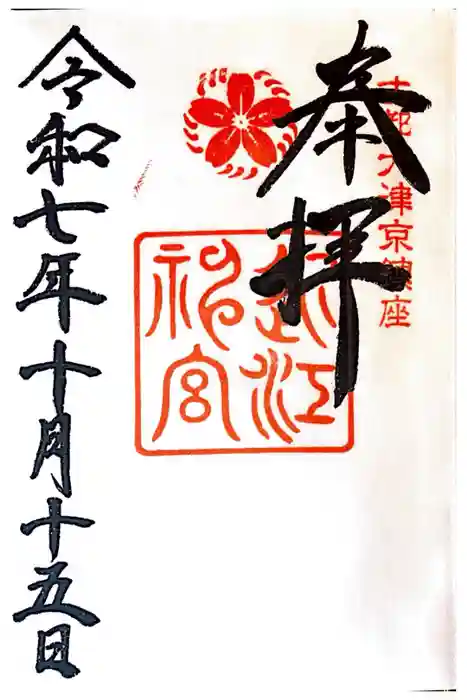 古都大津京鎮座
奉拝
近江
神宮
令和七年十月十五日